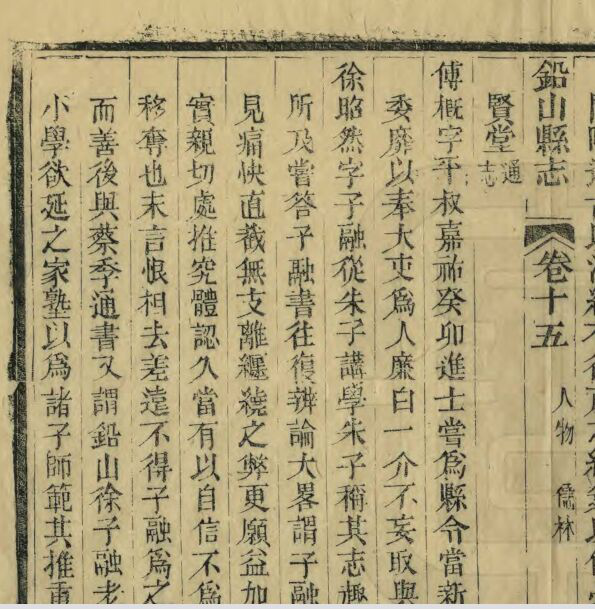 鉛山縣志
卷十五
人物
儒林
賢堂通志
傅概字平叔嘉祐癸卯進士嘗爲縣令當新
委靡以奉大吏爲人廉白一介不妄取與
徐昭然字子融從朱子講學朱子稱其志趣
所及嘗答子融書往復辨論大畧謂子融
見痛快直截無支離纏繞之弊更願益加
實親切處推究體認久當有以自信不爲
移奪也末言恨相去差遠不得子融爲之
而善後與蔡季通書又謂鉛山徐子融老
小學欲延之家塾以爲諸子師範其推重